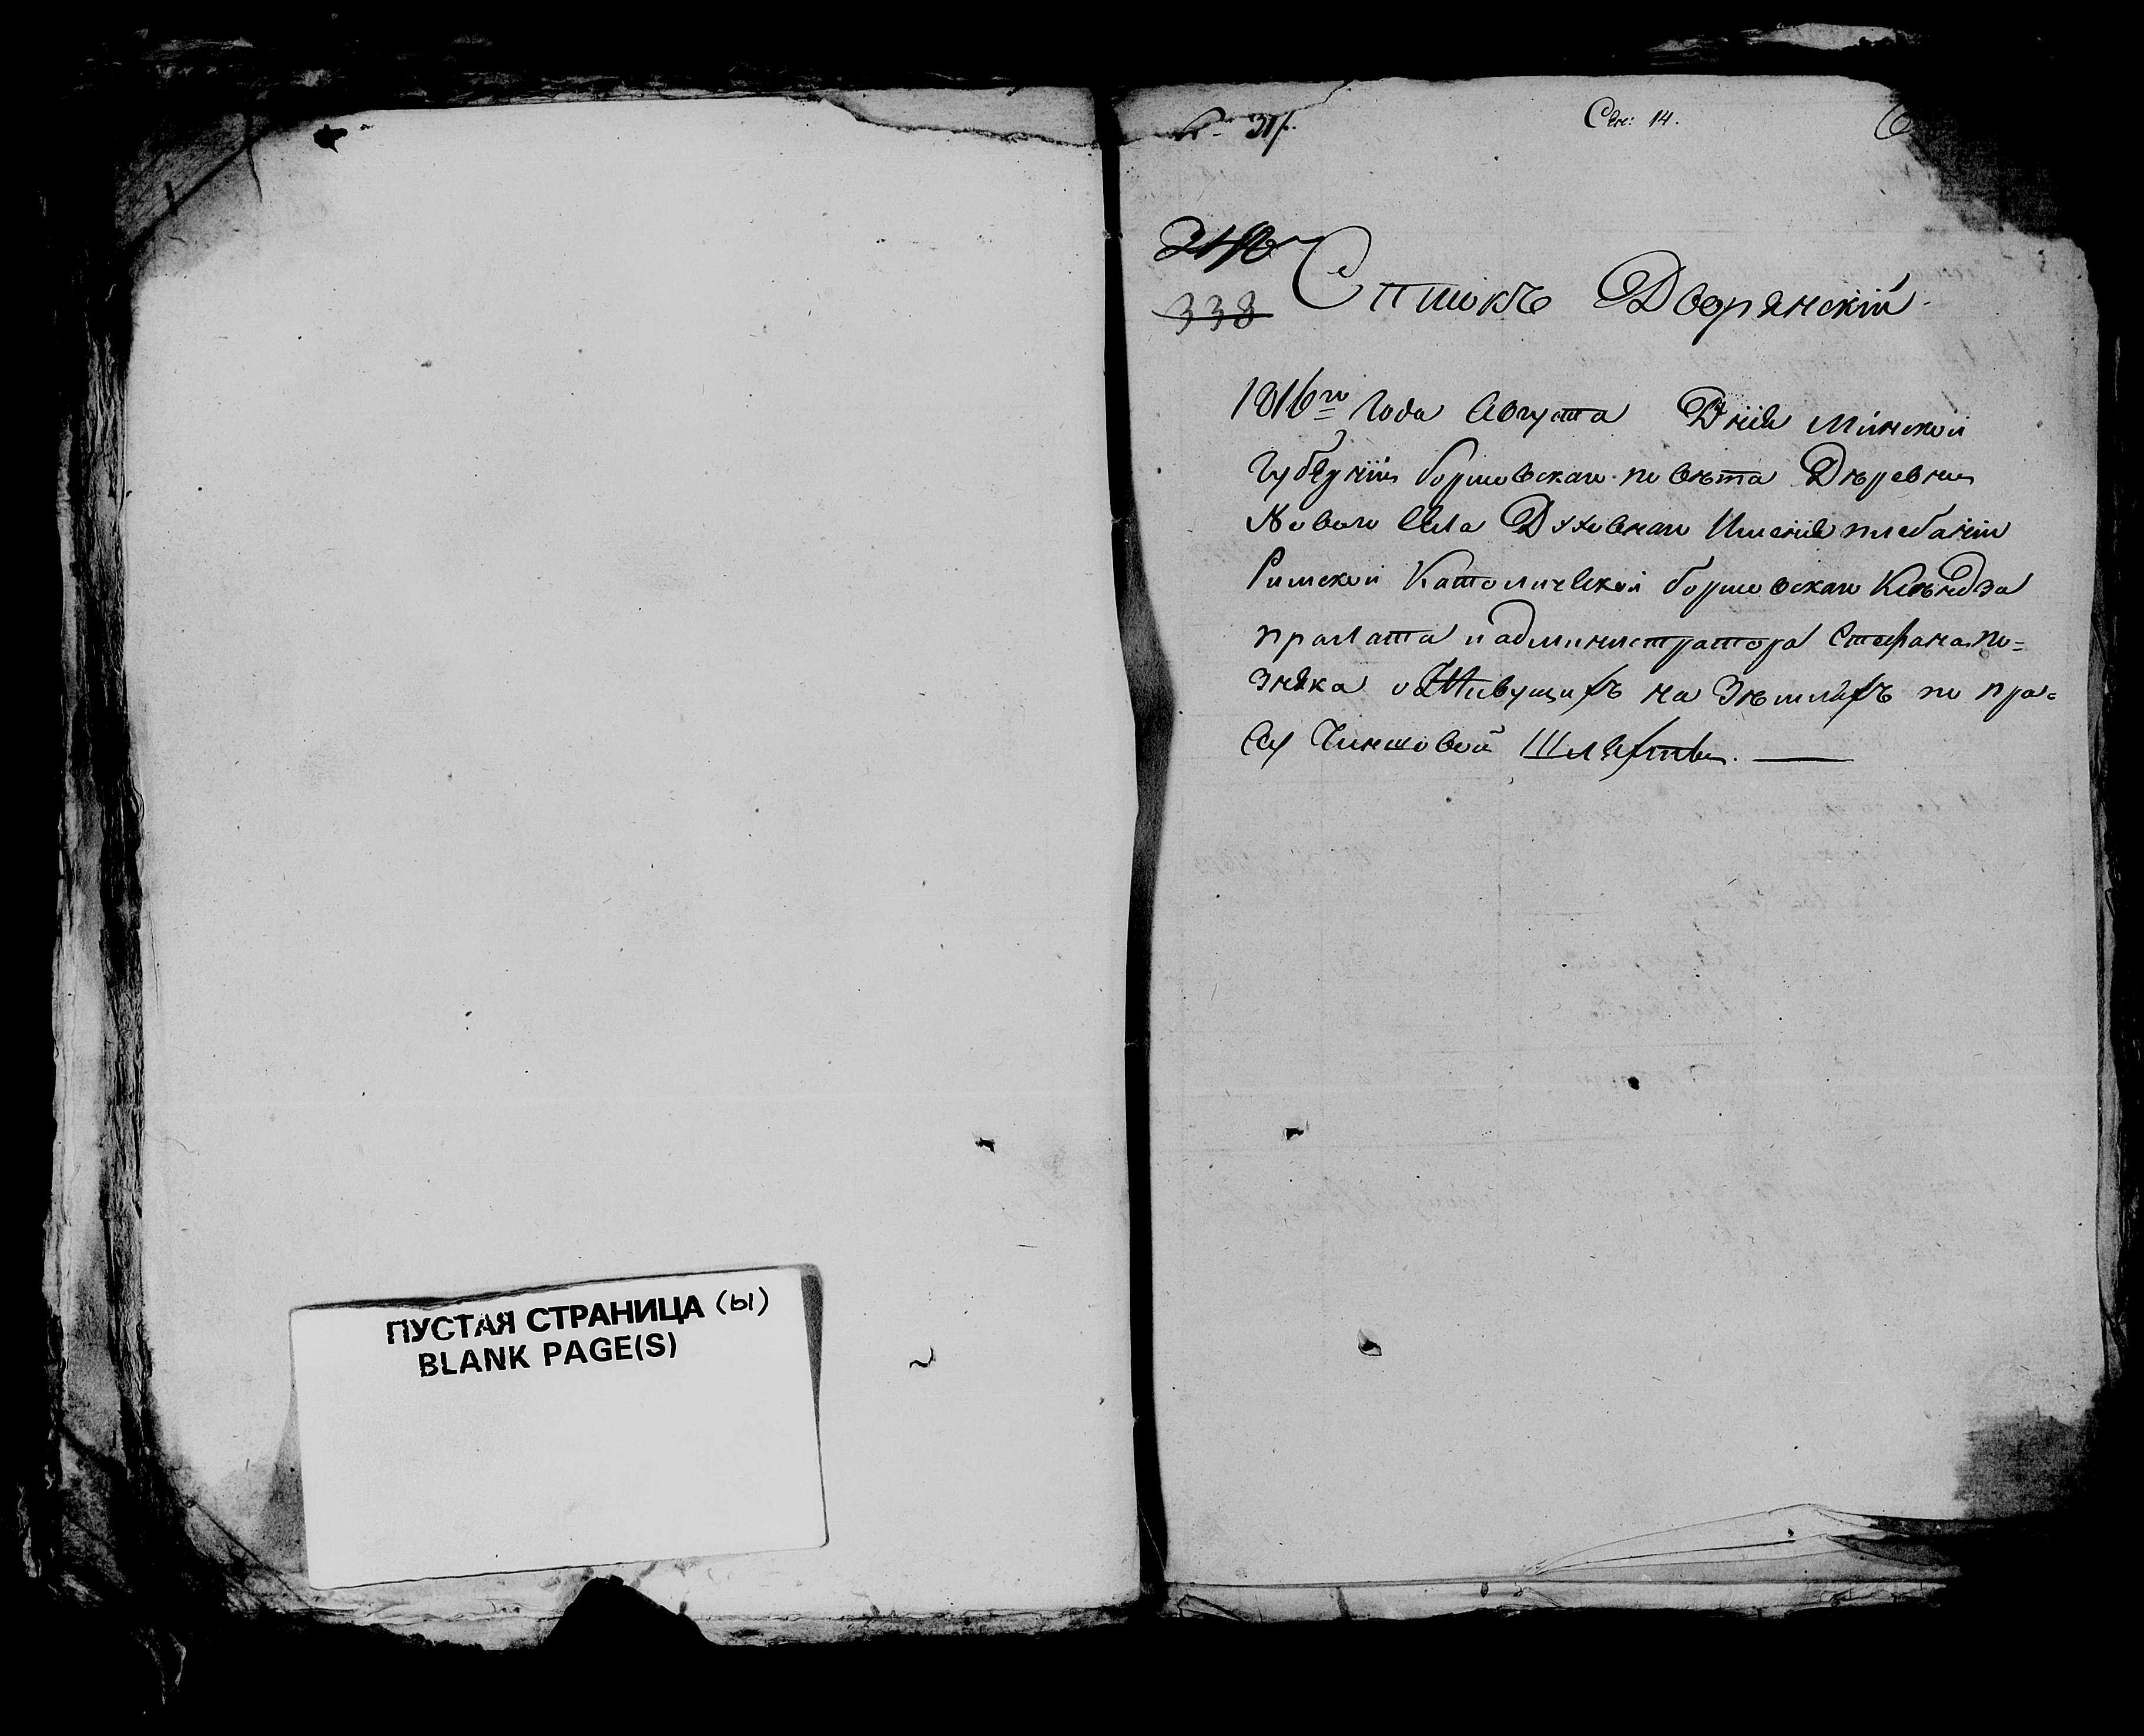 ПУСТАЯ СТРАНИЦА (ы)
BLANK PAGE(S)
№ 317.
Свя: 14.
338
Списокъ Дворянскій
1816го Года Августа Дня Минской
Губернии борисовскаго повѣта Дѣревни
Новаго Села Духовнаго Имения плебании
Римской Католической борисовскаго Ксѣндза
пралата и администратора Стефана по=
зняка о Живущихъ на Зѣмляхъ по пра=
ву Чиншовой Шляхты.